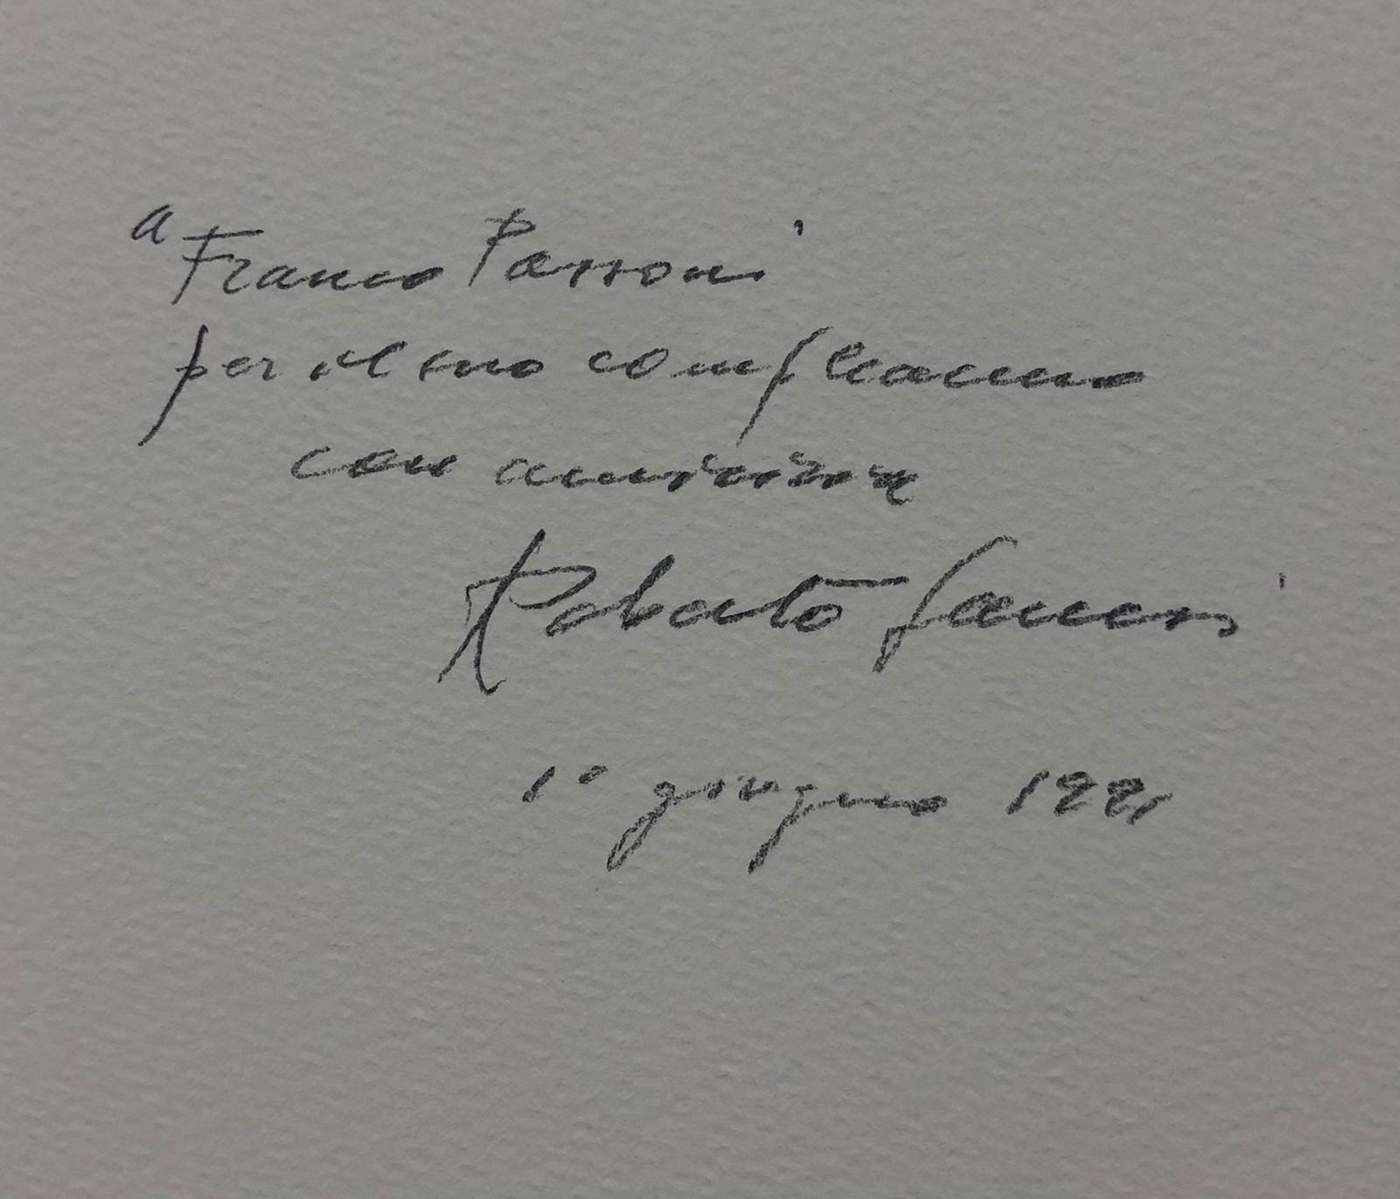 a Franco Passoni
per il suo compleanno
con amicizia
Roberto Sanesi
1° giugno 1991